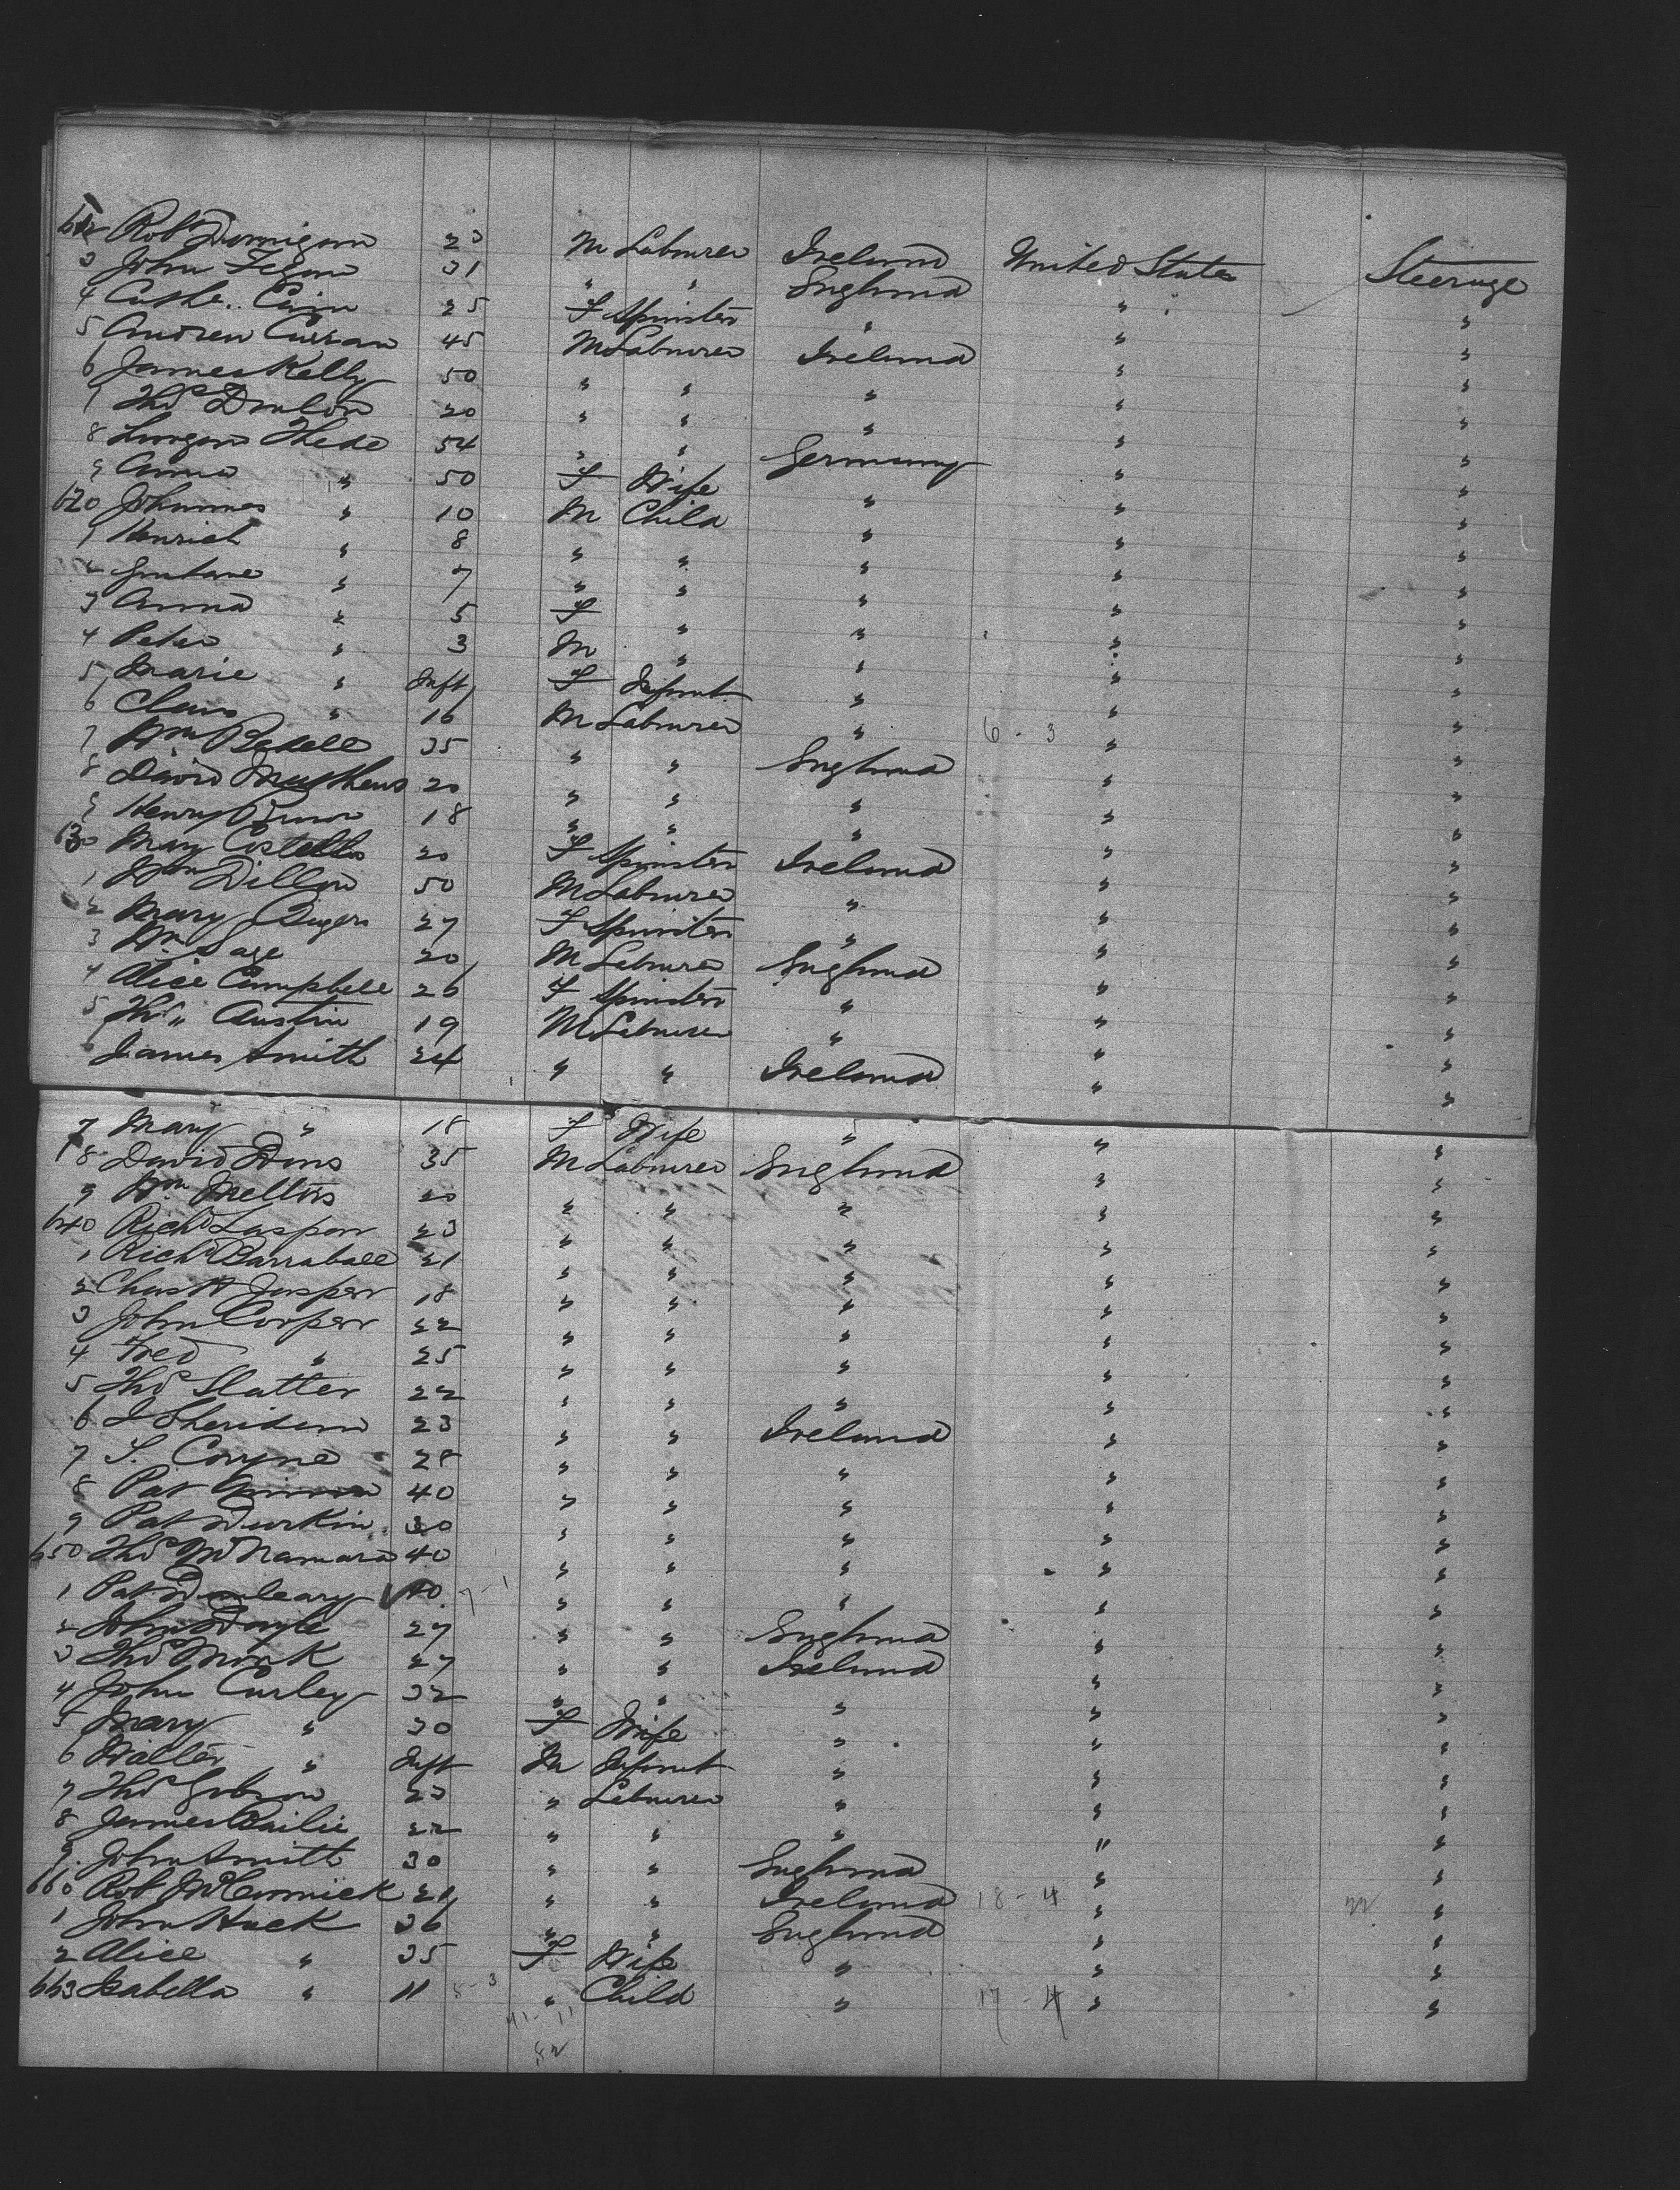 612 Robt Dunnigan 23 M Labourer Ireland United States Steerage
3 John Fegan 31 " " England " "
4 Cathe. Cain 25 F Spinster " " "
5 Andrew Curran 45 M Labourer Ireland " "
6 James Kelly 50 " " " " "
7 Thos Donlon 20 " " " " "
8 Thede 54 " " Germany " "
9 Anna " 50 F Wife " " "
620 Johannes " 10 M Child " " "
1 Henrich " 8 " " " " "
2 Gustave " 7 " " " " "
3 Anna " 5 F " " " "
4 Peter " 3 M " " " "
5 Marie " Inft F Infant " " "
6 Claus " 16 M Labourer " 6 - 3 " "
7 Wm 35 " " England " "
8 David Matthews 20 " " " " "
9 Henry 18 " " " " "
630 Mary Costello 20 F Spinster Ireland " "
1 Wm Dillon 50 M Labourer " " "
2 Mary 27 F Spinster " " "
3 Wm Sage 20 M Labourer England " "
4 Alice Campbell 26 F Spinster " " "
5 Tho" Austin 19 M Labourer " " "
6 James Smith 24 " " Ireland " "
7 Mary " 18 F Wife " " "
8 David 35 M Labourer England " "
9 Wm Mellors 20 " " " " "
640 Richd 23 " " " " "
1 Richd Barraball 21 " " " " "
2 Chas H Jasper 18 " " " " "
3 John Cooper 22 " " " " "
4 Fred " 25 " " " " "
5 Thos Slatter 22 " " " " "
6 J Sheridan 23 " " Ireland " "
7 S. Coyne 28 " " " " "
8 Pat 40 " " " " "
9 Pat Durkin 30 " " " " "
650 Thos McNamara 40 " " " " "
1 Pat Dunleavy 40 7-1 " " " " "
2 John Doyle 27 " " England " "
3 Thos Monk 27 " " Ireland " "
4 John Curley 32 " " " " "
5 Mary " 30 F Wife " " "
6 Walter " Inft M Infant " " "
7 Thos Gibson 23 " Labourer " " "
8 James Bailie 22 " " " " "
9 John Smith 30 " " England " "
660 Robt McCormick 21 " " Ireland 18 - 4 " "
1 John Huck 36 " " England " "
2 Alice " 35 F Wife " " "
663 Isabella " 11 5-3 " Child " 17 - 4 " "
41-11
82